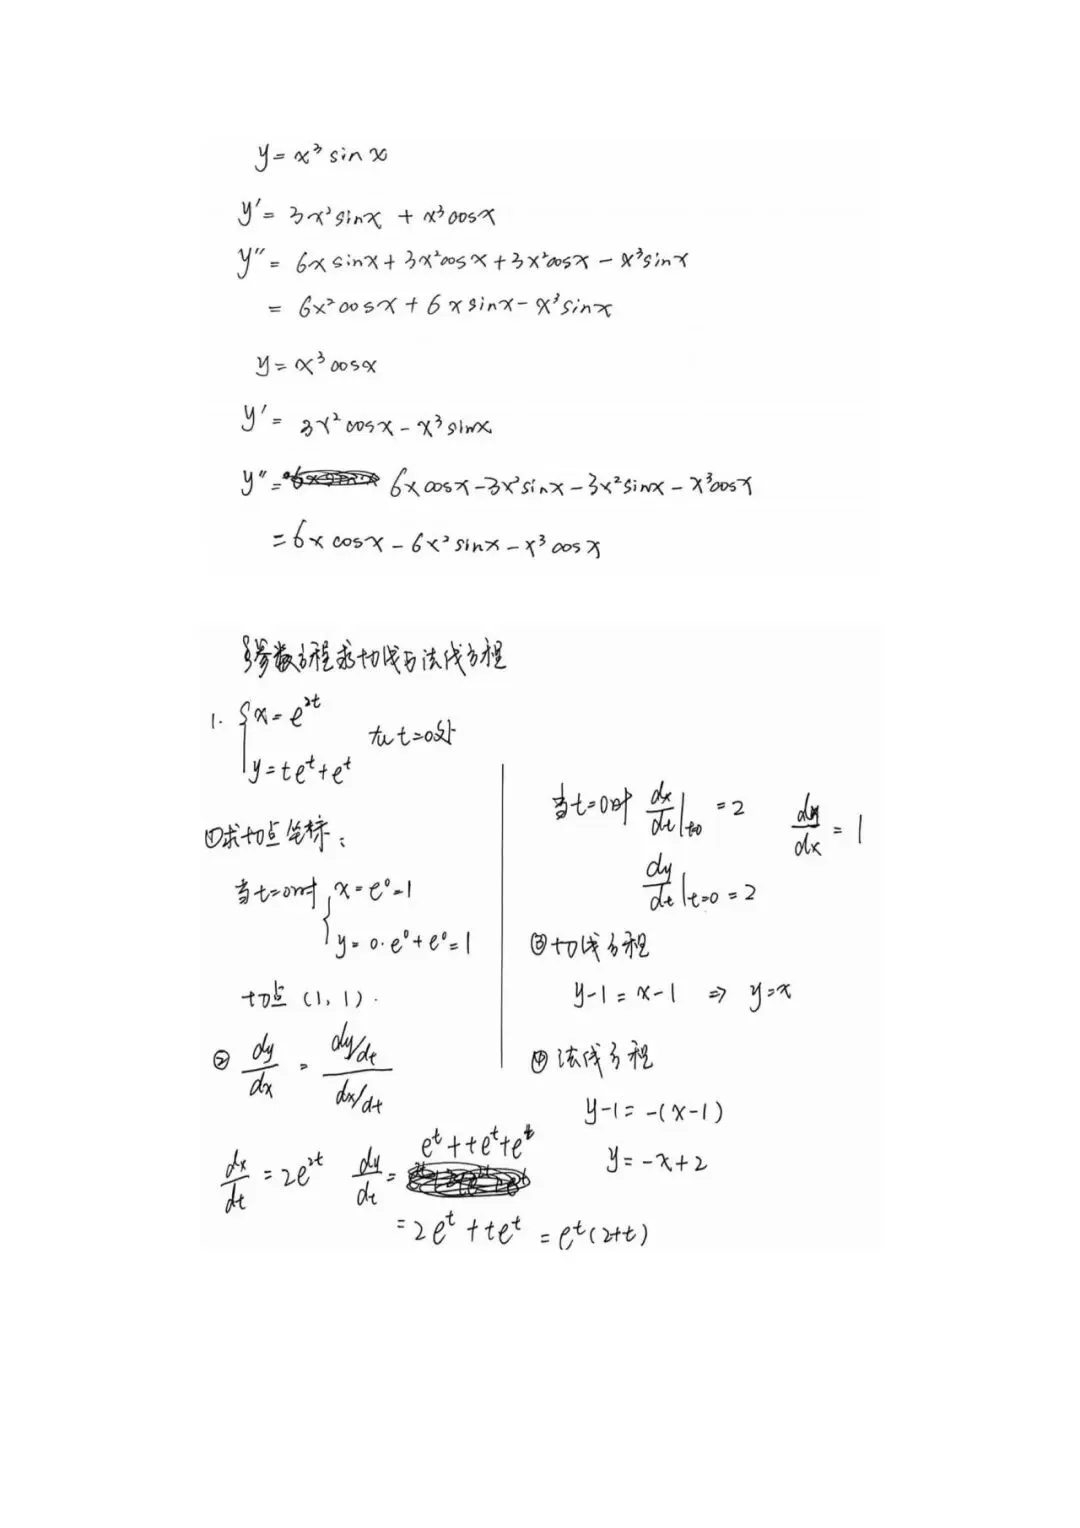 y = x³ sin x
y' = 3x² sinx + x³ cosx
y'' = 6x sinx + 3x² cosx + 3x² cosx - x³ sinx
= 6x² cosx + 6x sinx - x³ sinx
y = x³ cosx
y' = 3x² cosx - x³ sinx
y'' = 6x cosx - 3x² sinx - 3x² sinx - x³ cosx
= 6x cosx - 6x² sinx - x³ cosx
参数方程求切线与法线方程
1. { x = e^{2t}
y = te^t + e^t
在 t=0处
①求切点坐标:
当t=0时 { x = e⁰ = 1
y = 0·e⁰ + e⁰ = 1
切点 (1, 1).
② dy/dx = (dy/dt)/(dx/dt)
dx/dt = 2e^{2t} dy/dt = e^t + te^t + e^t
= 2e^t + te^t = e^t(2+t)
当t=0时 dx/dt|t=0 = 2 dy/dx = 1
dy/dt|t=0 = 2
③切线方程
y-1 = x-1 ⇒ y=x
④法线方程
y-1 = -(x-1)
y = -x+2